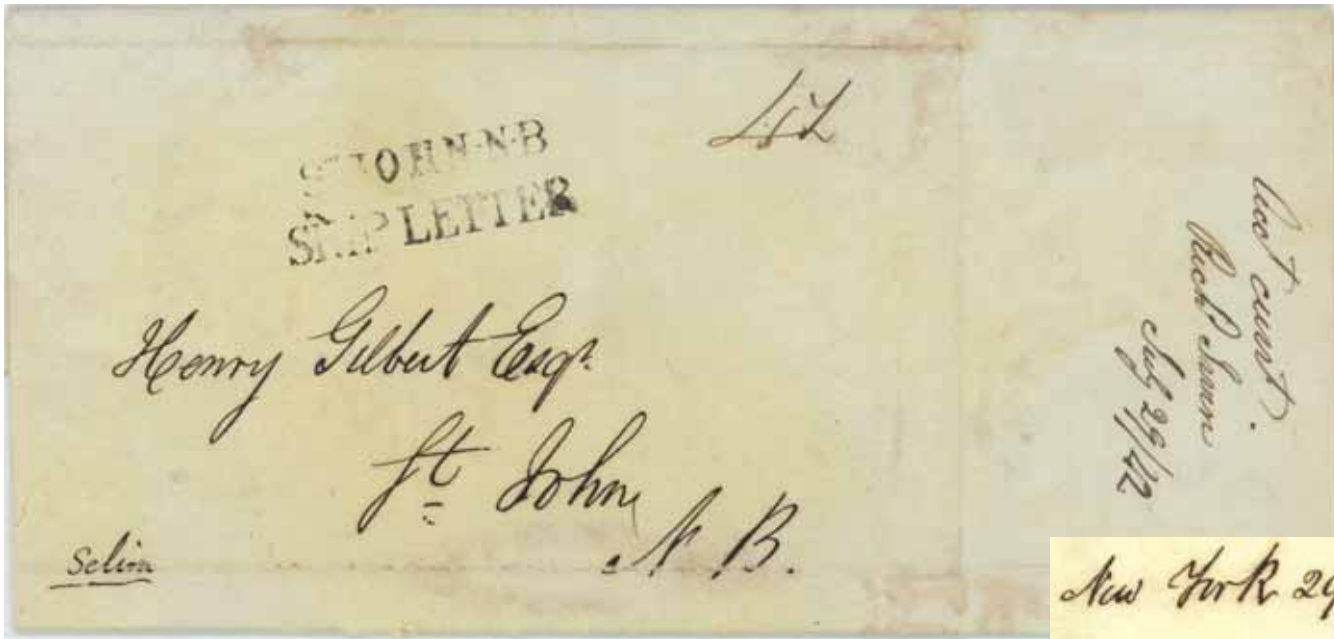 ST JOHN·N·B
SHIP LETTER
Henry Gilbert Esqr.
St John
N. B.
Selina
Acct currt.
Richd Irvin
July 29/42
New York 29